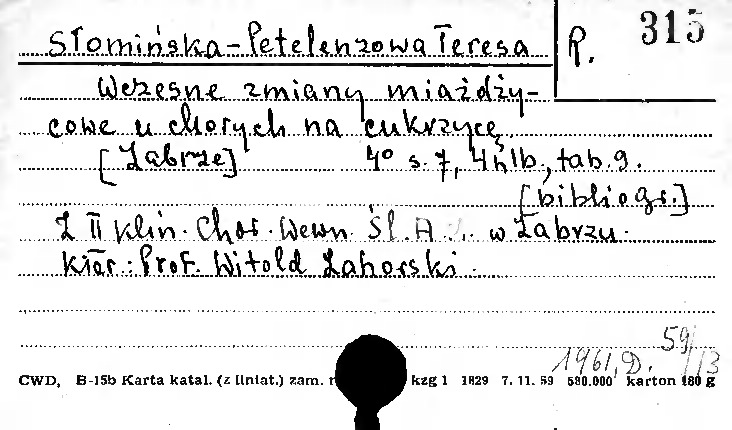 Słomińska-Petelenzowa Teresa
R. 315
Wczesne zmiany miażdży-
cowe u chorych na cukrzycę.
[Zabrze] 4° s. 7, 4 nlb., tab. 9.
[bibliogr.]
Z II Klin. Chor. Wewn. Śl. A. w Zabrzu.
Kier.: Prof. Witold Zahorski.
59/113
1961, D.
CWD, B-15b Karta katal. (z liniat.) zam. kzg 1 1829 7. 11. 59 580.000 karton 180 g